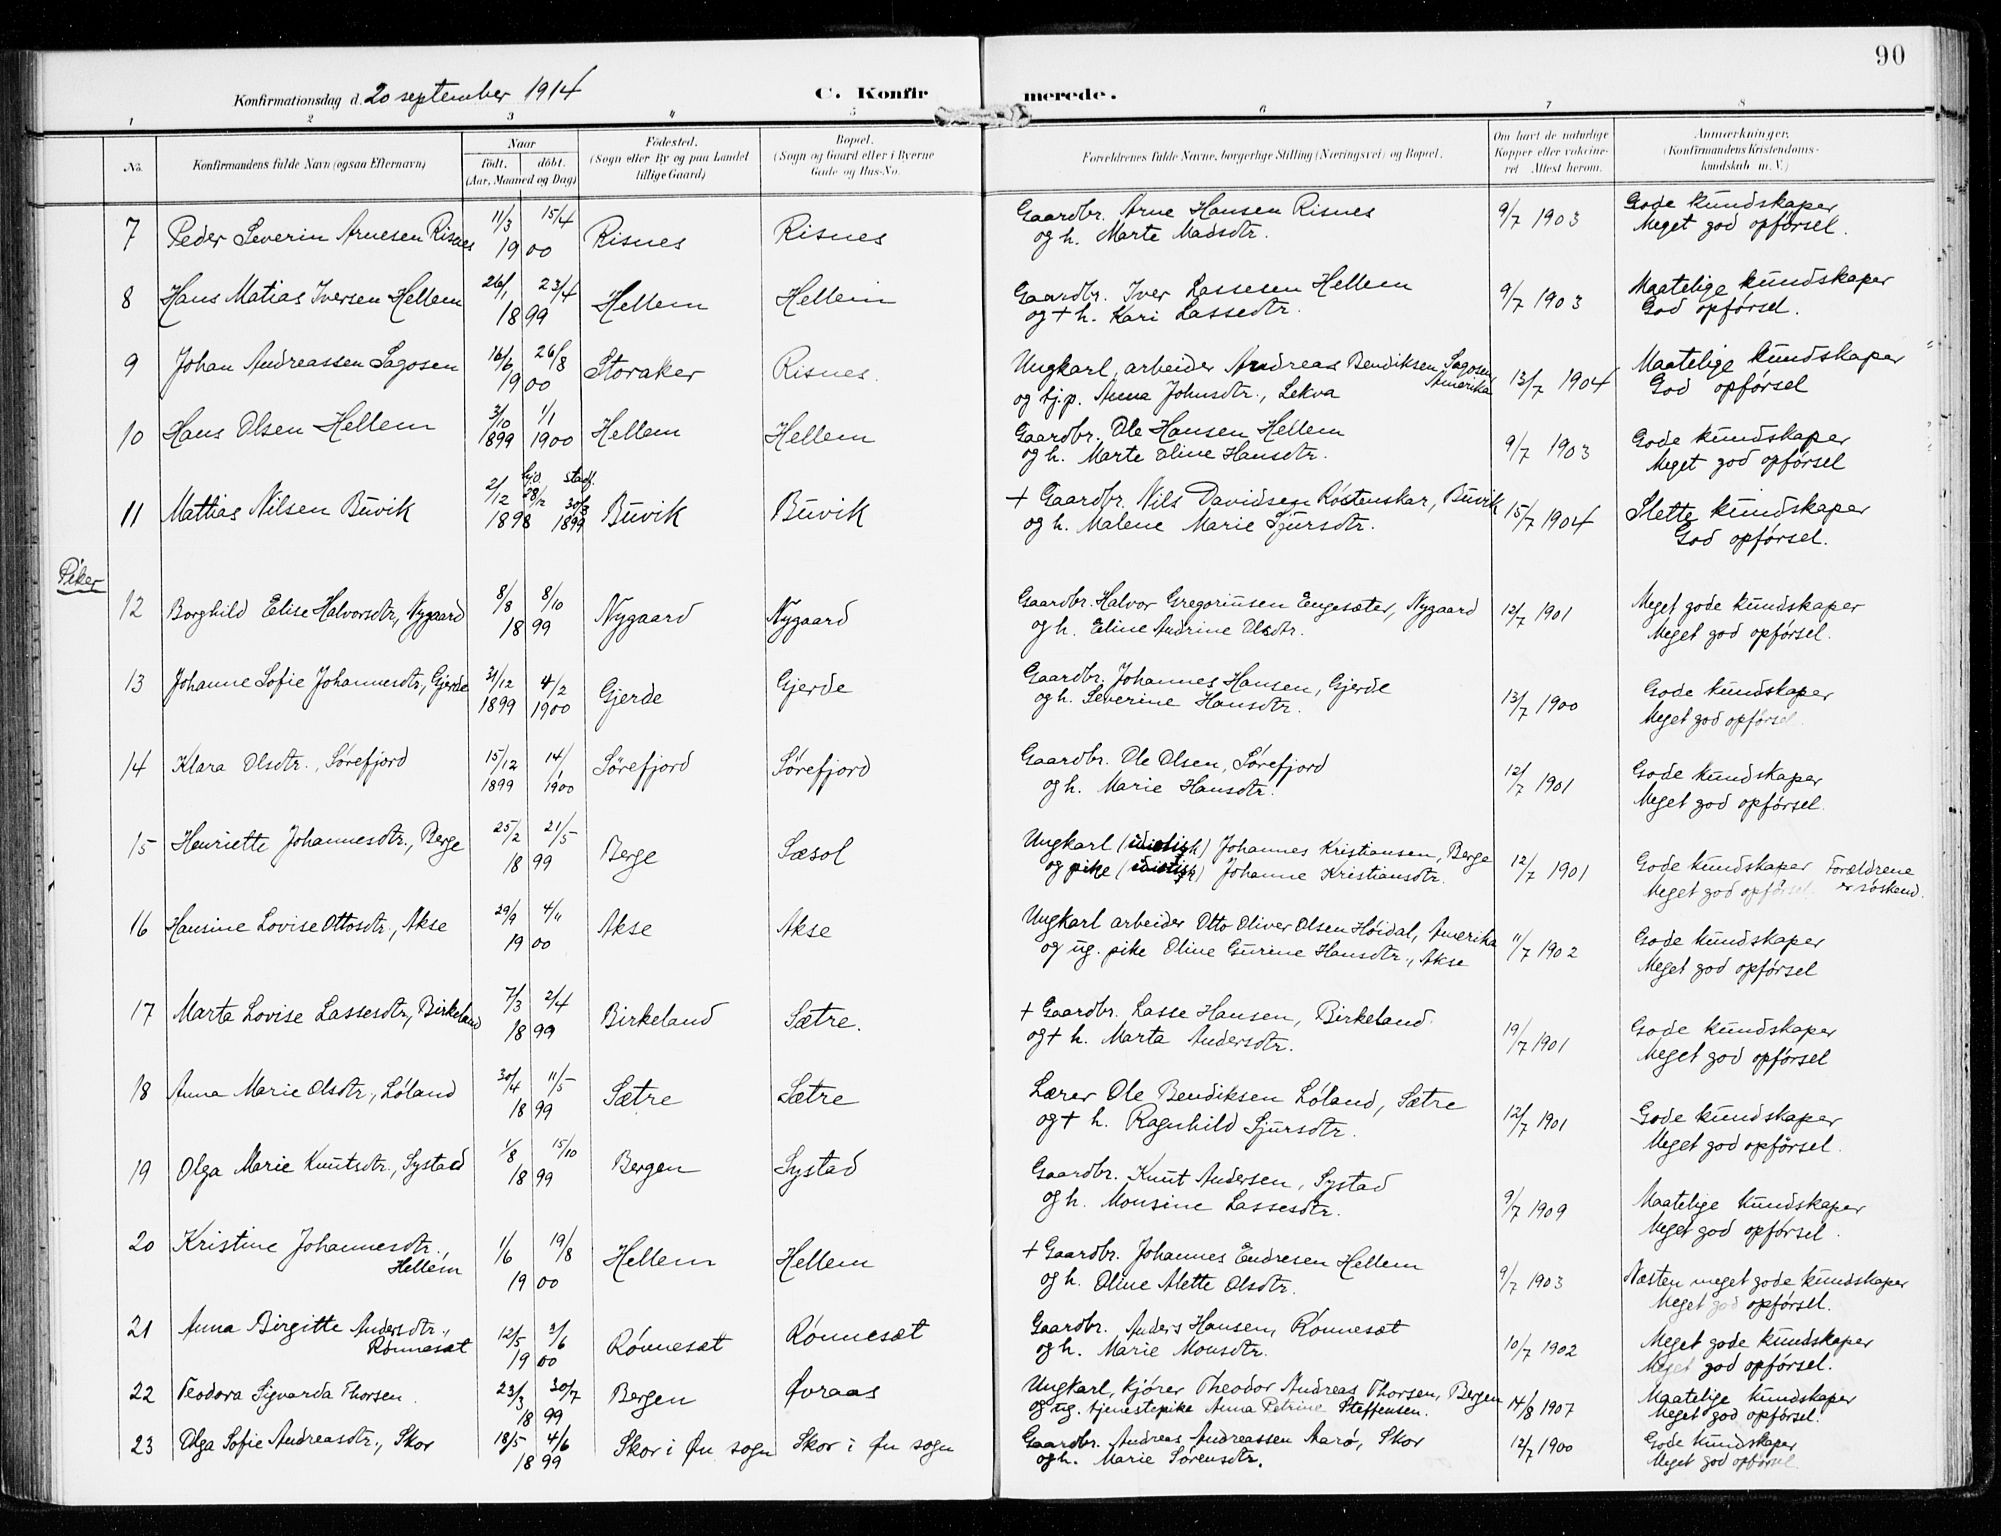 90
Konfirmationsdag d. 20 september 1914 C. Konfirmerede.
1 2 3 4 5 6 7 8
No. Konfirmandens fulde Navn (ogsaa Efternavn) Naar födt. döbt. (Aar, Maaned og Dag) Födested. (Sogn eller By og paa Landet tillige Gaard) Bopæl. (Sogn og Gaard eller i Byerne Gade og Hus-No. Forældrenes fulde Navne, borgerlige Stilling (Næringsvei) og Bopæl. Om havt de naturlige Kopper eller vakcineret Attest herom. Anmærkninger. (Konfirmandens Kristendomskundskab m. V.)
7 Peder Severin Arnesen Risnes 11/3 15/4 1900 Risnes Risnes Gaardbr. Arne Hansen Risnes 9/7 1903 Gode kundskaper
og h. Marte Madsdtr. Meget god opförsel.
8 Hans Matias Iversen Hellem 26/1 23/4 1899 Hellem Hellem Gaardbr. Iver Lassesen Hellem 9/7 1903 Maatelige kundskaper
og + h. Kari Lassedtr. God opförsel.
9 Johan Andreassen Sagosen 16/6 26/8 1900 Storaker Risnes. Ungkarl, arbeider Andreas Bendiksen Sagosen, Amerika 13/7 1904 Maatelige kundskaper
og tj.p. Anna Johnsdtr., Lekva God opförsel
10 Hans Olsen Hellem 3/10 1899 1/1 1900 Hellem Hellem Gaardbr. Ole Hansen Hellem 9/7 1903 Gode kundskaper
og h. Marte Oline Hansdtr. Meget god opförsel
11 Mattias Nilsen Buvik 2/12 1898 28/12 stadf. 30/3 1899 Buvik Buvik + Gaardbr. Nils Davidsen Röstenskar, Buvik 15/7 1904 Slette kundskaper
og h. Malene Marie Sjursdtr. God opförsel.
Piker
12 Borghild Elise Halvorsdtr., Nygaard 8/8 8/10 1899 Nygaard Nygaard Gaardbr. Halvor Gregoriusen Engesæter, Nygaard 12/7 1901 Meget gode kundskaper
og h. Eline Andrine Olsdtr. Meget god opförsel.
13 Johanne Sofie Johannesdtr., Gjerde 31/12 1899 4/2 1900 Gjerde Gjerde Gaardbr. Johannes Hansen, Gjerde 13/7 1900 Gode kundskaper
og h. Severine Hansdtr. Meget god opförsel.
14 Klara Olsdtr., Sörefjord 15/12 1899 14/1 1900 Sörefjord Sörefjord Gaardbr. Ole Olsen, Sörefjord 12/7 1901 Gode kundskaper
og h. Marie Hansdtr. Meget god opförsel.
15 Henriette Johannesdtr., Berge 25/2 21/5 1899 Berge Sæsol Ungkarl (idiotisk) Johannes Kristiansen, Berge 12/7 1901 Gode kundskaper Forældrene
og pike (idiotisk) Johanne Kristiansdtr. Meget god opförsel. er söskend.
16 Hansine Lovise Ottosdtr., Akse 29/9 4/11 1900 Akse Akse Ungkarl arbeider Otto Oliver Olsen Höidal, Amerika 11/7 1902 Gode kundskaper
og ug. pike Oline Gurine Hansdtr., Akse Meget god opförsel
17 Marta Lovise Lassesdtr., Birkeland 7/3 2/4 1899 Birkeland Sætre. + Gaardbr. Lasse Hansen, Birkeland. 19/7 1901 Gode kundskaper
og + h. Marta Andersdtr. Meget god opförsel
18 Anna Marie Olsdtr., Löland 30/4 11/5 1899 Sætre Sætre Lærer Ole Bendiksen Löland, Sætre 12/7 1901 Gode kundskaper
og + h. Ragnhild Sjursdtr. Meget god opförsel.
19 Olga Marie Knutsdtr., Systad 1/8 15/10 1899 Bergen Systad Gaardbr. Knut Andersen, Systad 9/7 1909 Maatelige kundskaper
og h. Monsine Lassesdtr. Meget god opförsel.
20 Kristine Johannesdtr., Hellem 1/6 19/8 1900 Hellem Hellem + Gaardbr. Johannes Endresen Hellem 9/7 1903 Næsten meget gode kundskaper
og h. Oline Alette Olsdtr. Meget god opförsel.
21 Anna Birgitte Andersdtr., Rönnesæt 12/5 3/6 1900 Rönnesæt Rönnesæt Gaardbr. Anders Hansen, Rönnesæt 10/7 1902 Meget gode kundskaper
og h. Marie Monsdtr. Meget god opförsel.
22 Teodora Sigvarda Thorsen. 23/3 30/7 1899 Bergen Øvraas Ungkarl, kjörer Theodor Andreas Thorsen, Bergen 14/8 1907 Maatelige kundskaper
og ug. tjenestepike Anna Petrine Steffensen. Meget god opförsel.
23 Olga Sofie Andreasdtr., Skor 18/5 4/6 1899 Skor i Øn sogn Skor i Øn sogn Gaardbr. Andreas Andreassen Aarö, Skor 12/7 1900 Gode kundskaper
og h. Marie Sörensdtr. Meget god opförsel.